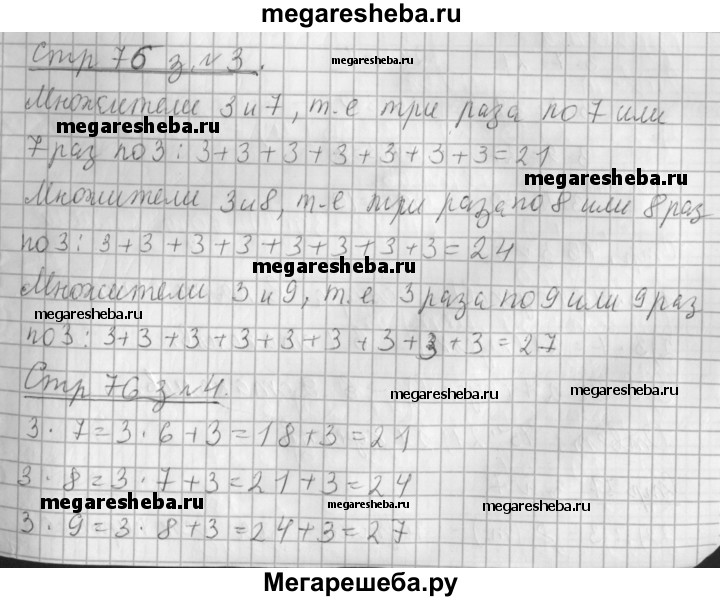 megaresheba.ru
Стр 76 з. №3.
megaresheba.ru
Множители 3 и 7, т.е три раза по 7 или
megaresheba.ru
7 раз по 3: 3+3+3+3+3+3+3=21
megaresheba.ru
Множители 3 и 8, т-е три раза по 8 или 8 раз
по 3: 3+3+3+3+3+3+3+3=24
megaresheba.ru
Множители 3 и 9, т.е. 3 раза по 9 или 9 раз
megaresheba.ru
по 3: 3+3+3+3+3+3+3+3+3=27
Стр 76 з №4.
megaresheba.ru
megaresheba.ru
3·7=3·6+3=18+3=21
3·8=3·7+3=21+3=24
megaresheba.ru
megaresheba.ru
megaresheba.ru
3·9=3·8+3=24+3=27
Мегарешеба.ру